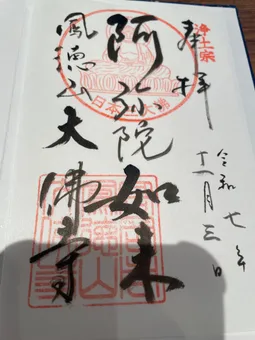 奉拝
浄土宗
令和七年
十一月三日
阿弥陀如来
鳳徳山大佛寺